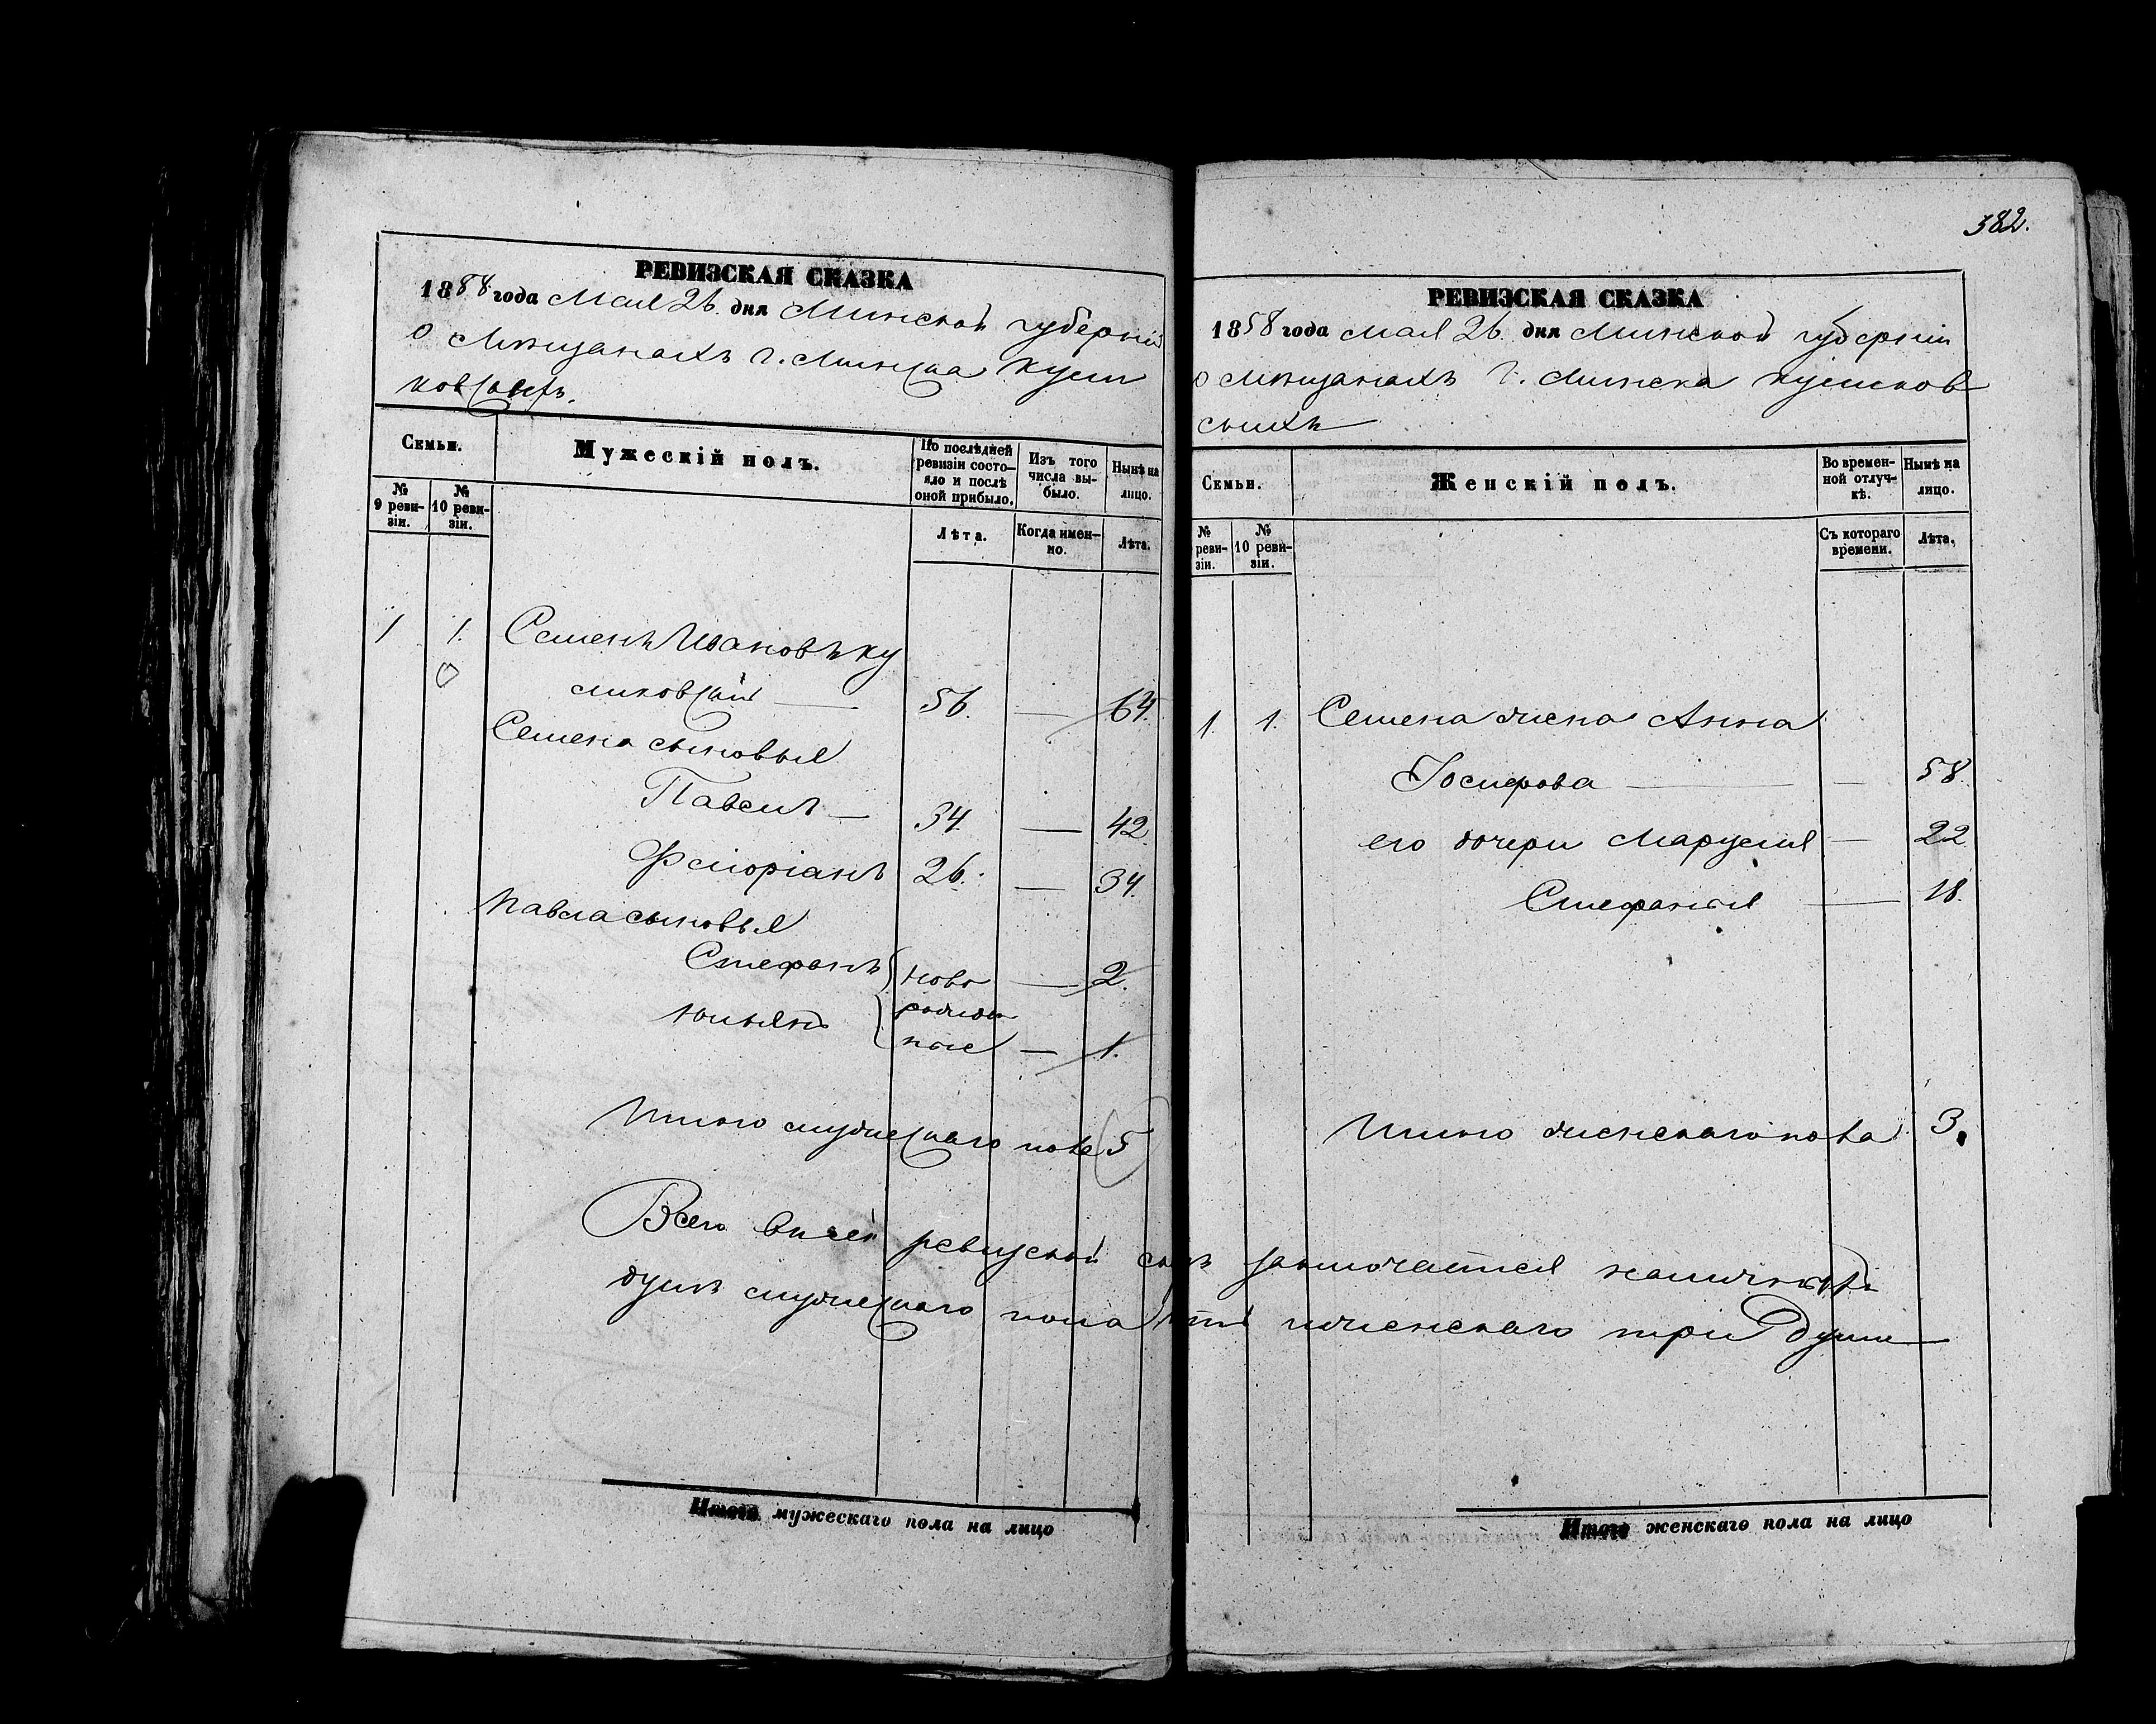 РЕВИЗСКАЯ СКАЗКА
1858 года Мая 26. дня Минской губерніи
о Мѣщанахъ г. Минска Кули
ковскихъ.
Семьи.
Мужескій полъ.
По послѣдней ревизіи состояло и послѣ оной прибыло.
Изъ того числа выбыло.
Нынѣ на лицо.
№ 9 ревизіи.
№ 10 ревизіи.
Лѣта.
Когда именно.
Лѣта.
1 1. Семенъ Ивановъ Ку
ликовскій — 56. — 64.
Семена сыновья
Павелъ — 34. — 42
Флоріанъ 26. — 34.
Павла сыновья
Стефанъ ново — 2.
Юльянъ рожден
ные — 1.
Итого мужескаго пола 5
Всего въ сей ревизской
душъ мужескаго пола
Итого мужескаго пола на лицо
382.
РЕВИЗСКАЯ СКАЗКА
1858 года Мая 26. дня Минской губерніи
о Мѣщанахъ г. Минска Куликов
скихъ
Семьи.
Женскій полъ.
Во временной отлучкѣ.
Нынѣ на лицо.
№ ревизіи.
№ 10 ревизіи.
Съ котораго времени.
Лѣта.
1. 1. Семена жена Анна
Іосифова — — 58.
его дочери Марцелія — 22
Стефанія — 18.
Итого женскаго пола 3.
заключается наличныхъ
пять и женскаго три души
Итого женскаго пола на лицо